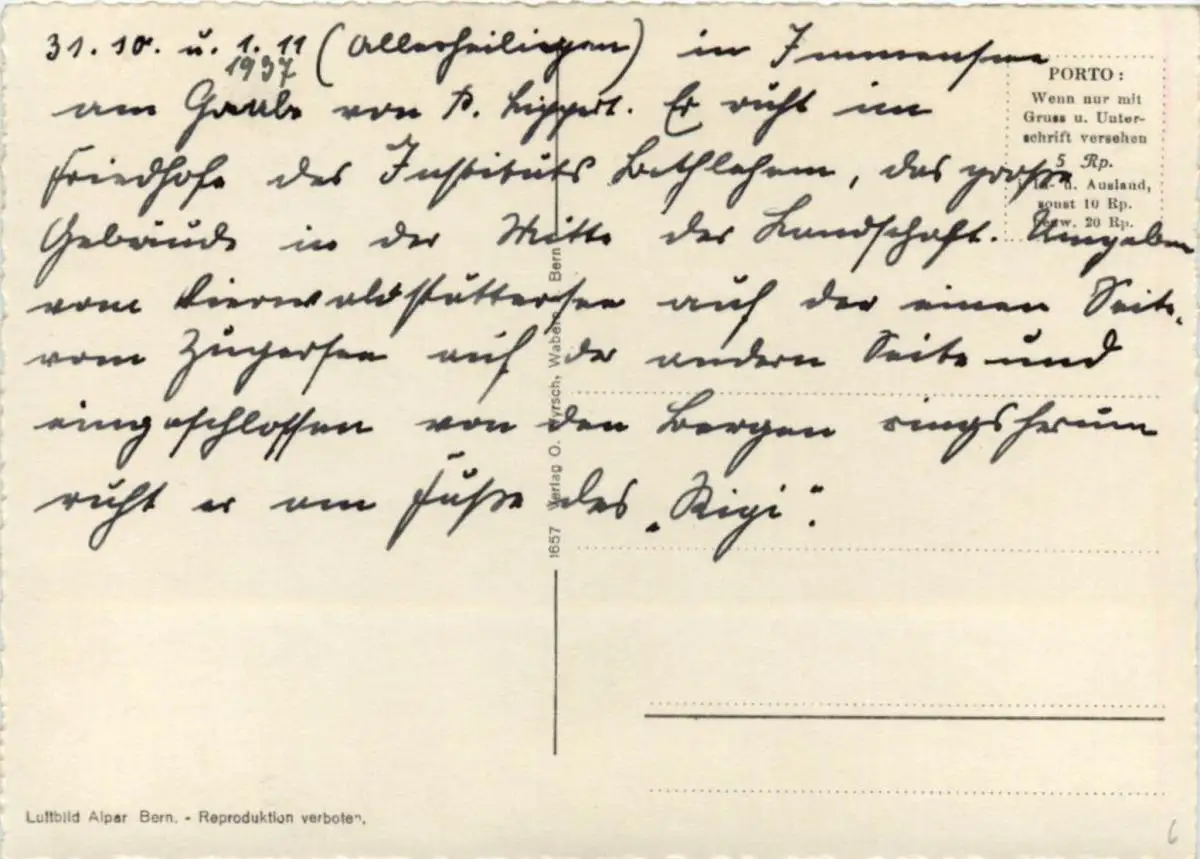 31.10. u. 1.11 (Allerheiligen) in Immensee
1937
am Grabe von P. Lippert. Er ruht im
Friedhofe des Instituts Bethlehem, das große
Gebäude in der Mitte der Landschaft. Umgeben
vom Vierwaldstättersee auf der einen Seite,
vom Zugersee auf der andern Seite und
eingeschlossen von den Bergen ringsherum
ruht er am Fuße des „Rigi".
PORTO:
Wenn nur mit
Gruss u. Unter-
schrift versehen
5 Rp.
In- u. Ausland,
sonst 10 Rp.
bezw. 20 Rp.
1657 Verlag O. Wyrsch, Wabern - Bern
Luftbild Alpar Bern. - Reproduktion verboten.
6